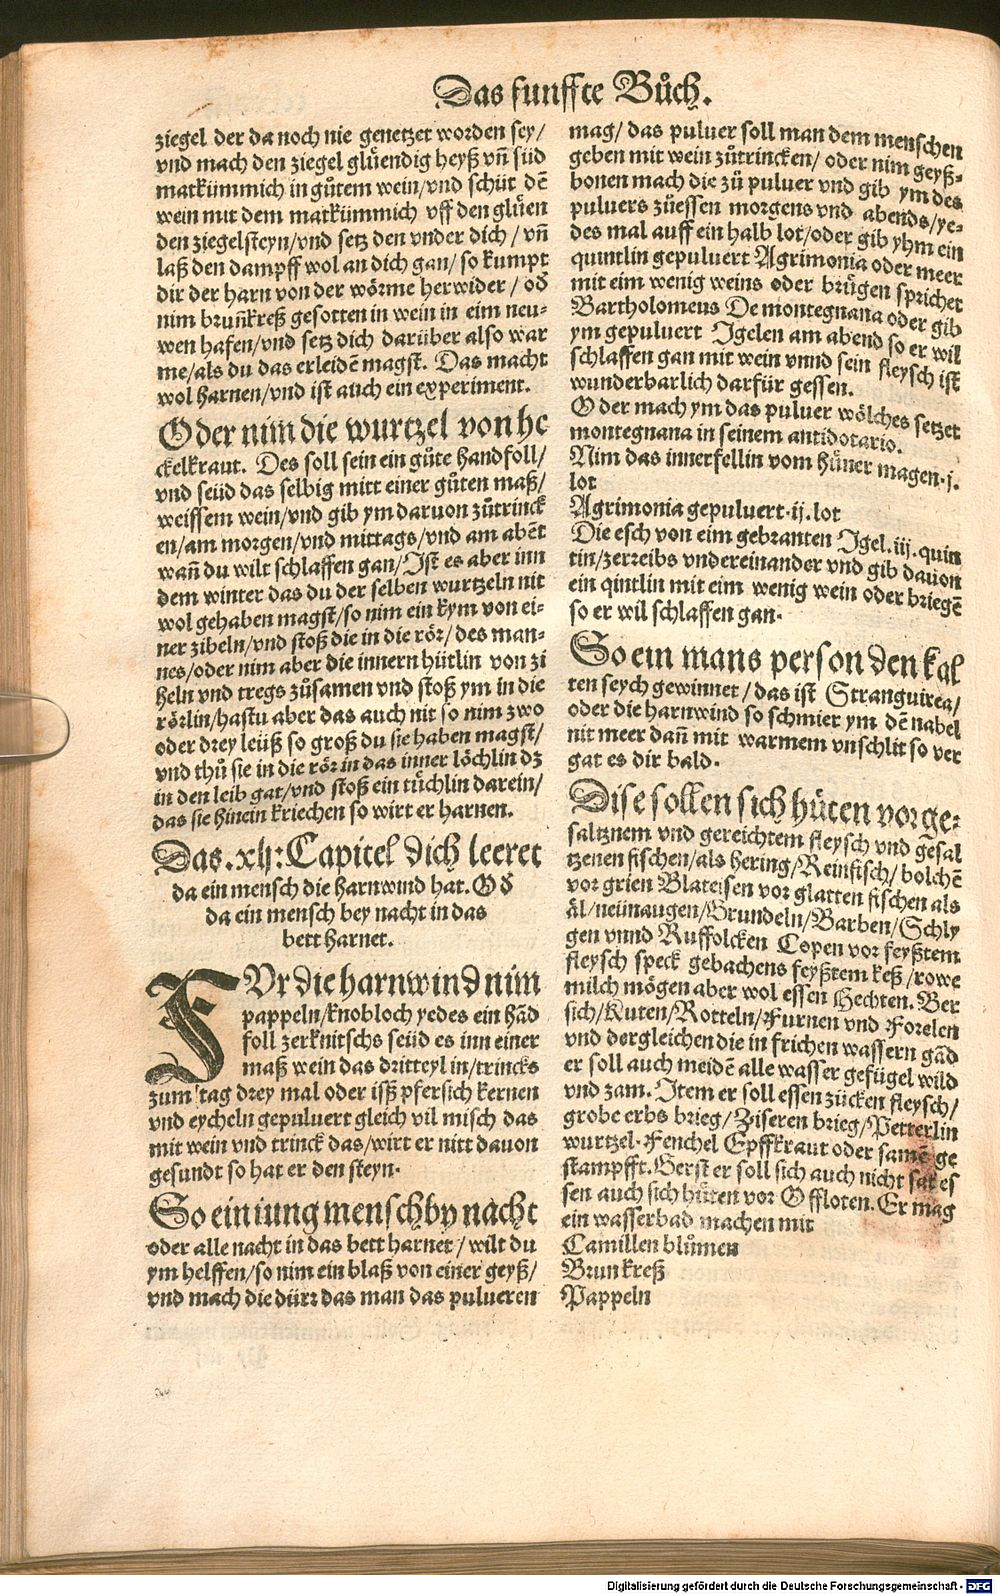 Das funffte Bůch.
ziegel der da noch nie genetzet worden sey/
vnd mach den ziegel glüendig heyß vñ süd
matkümmich in gůtem wein/vnd schüt dē
wein mit dem matkümmich vff den glüen
den ziegelsteyn/vnd setz den vnder dich/vñ
laß den dampff wol an dich gan/so kumpt
dir der harn von der wörme herwider/oď
nim bruñkreß gesotten in wein in eim neu-
wen hafen/vnd setz dich darüber also war
me/als du das erleidē magst. Das macht
wol harnen/vnd ist auch ein experiment.
Oder nim die wurtzel von he
ckelkraut. Des soll sein ein gůte handfoll/
vnd seüd das selbig mitt einer gůten maß/
weissem wein/vnd gib ym daruon zůtrinck
en/am morgen/vnd mittags/vnd am abēt
wañ du wilt schlaffen gan/Ist es aber inn
dem winter das du der selben wurtzeln nit
wol gehaben magst/so nim ein kym von ei-
ner zibeln/vnd stoß die in die rör/des man-
nes/oder nim aber die innern hütlin von zi
beln vnd tregs zůsamen vnd stoß ym in die
rörlin/hastu aber das auch nit so nim zwo
oder drey leüß so groß du sie haben magst/
vnd thů sie in die rör in das inner löchlin dz
in den leib gat/vnd stoß ein tüchlin darein/
das sie hinein kriechen so wirt er harnen.
Das .xlj: Capitel dich leeret
da ein mensch die harnwind hat. Oď
da ein mensch bey nacht in das
bett harnet.
FVr die harnwind nim
pappeln/knobloch yedes ein hād
foll zerknitschs seüd es inn einer
maß wein das dritteyl in/trincks
zum tag drey mal oder isß pfersich kernen
vnd eycheln gepuluert gleich vil misch das
mit wein vnd trinck das/wirt er nitt dauon
gesundt so hat er den steyn.
So ein iung mensch by nacht
oder alle nacht in das bett harnet/wilt du
ym helffen/so nim ein blaß von einer geyß/
vnd mach die dürr das man das pulueren
mag/das puluer soll man dem menschen
geben mit wein zůtrincken/oder nim geyß-
bonen mach die zů puluer vnd gib ym des
puluers zůessen morgens vnd abends/ye-
des mal auff ein halb lot/oder gib yhm ein
quintlin gepuluert Agrimonia oder meer
mit eim wenig weins oder brügen sprichet
Bartholomeus De montegnana oder gib
ym gepuluert Igelen am abend so er wil
schlaffen gan mit wein vnnd sein fleysch ist
wunderbarlich darfür gessen.
Oder mach ym das puluer wölches setzet
montegnana in seinem antidotario.
Nim das innerfellin vom hüner magen.j.
lot
Agrimonia gepuluert.ij.lot
Die esch von eim gebranten Igel.iij.quin
tin/zerreibs vndereinander vnd gib dauon
ein qintlin mit eim wenig wein oder briegē
so er wil schlaffen gan.
So ein mans person den kal
ten seych gewinnet/das ist Stranguirea/
oder die harnwind so schmier ym dē nabel
nit meer dañ mit warmem vnschlit so ver
gat es dir bald.
Dise sollen sich hüten vor ge-
saltznem vnd gereichtem fleysch vnd gesal
tzenen fischen/als hering/Reinfisch/bolchē
vor grien Blateisen vor glatten fischen als
äl/neünaugen/Grundeln/Barben/Schly
gen vnnd Ruffolcken Copen vor feyßtem
fleysch speck gebachens feyßtem keß/rowe
milch mögen aber wol essen Hechten. Ber
sich/Kuten/Rotteln/Furnen vnd Forelen
vnd dergleichen die in frichen wassern gād
er soll auch meidē alle wasser gefügel wild
vnd zam. Item er soll essen zücken fleysch/
grobe erbs brieg/Ziseren brieg/Petterlin
wurtzel.Fenchel Epffkraut oder samē ge
stampfft.Gerst er soll sich auch nicht sat es
sen auch sich hüten vor Offloten. Er mag
ein wasserbad machen mit
Camillen blůmen
Brunkreß
Pappeln
Digitalisierung gefördert durch die Deutsche Forschungsgemeinschaft - DFG